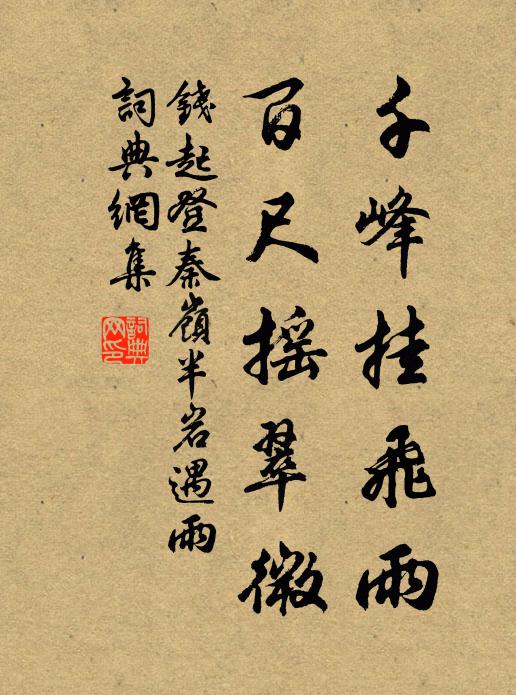 千峰挂飛雨
百尺摇翠微
錢起登秦嶺半岩遇雨
詞典網集
詞典网印